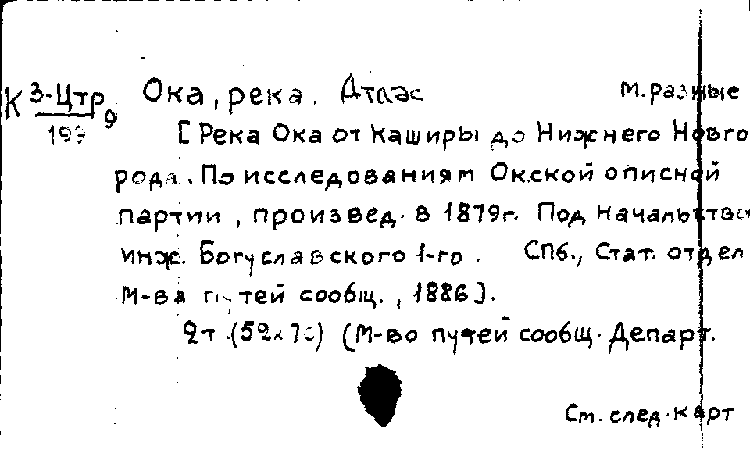 К 3-Цтр 9 Ока, река. Атлас М. разные
193
[Река Ока от Каширы до Нижнего Новго
рода. По исследованиям Окской описной
партии, произвед. в 1879г. Под начальством
инж. Богуславского 1-го. СПб., Стат. отдел
М-ва путей сообщ., 1886].
2т. (52х73) (М-во путей сообщ. Департ.
См. след. карт